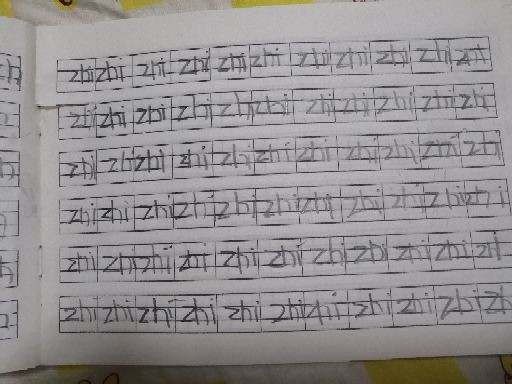 zhi zhi zhi zhi zhi zhi zhi zhi zhi zhi zhi
zhi zhi zhi zhi zhi zhi zhi zhi zhi zhi zhi
zhi zhi zhi zhi zhi zhi zhi zhi zhi zhi zhi
zhi zhi zhi zhi zhi zhi zhi zhi zhi zhi zhi
zhi zhi zhi zhi zhi zhi zhi zhi zhi zhi zhi
zhi zhi zhi zhi zhi zhi zhi zhi zhi zhi zh